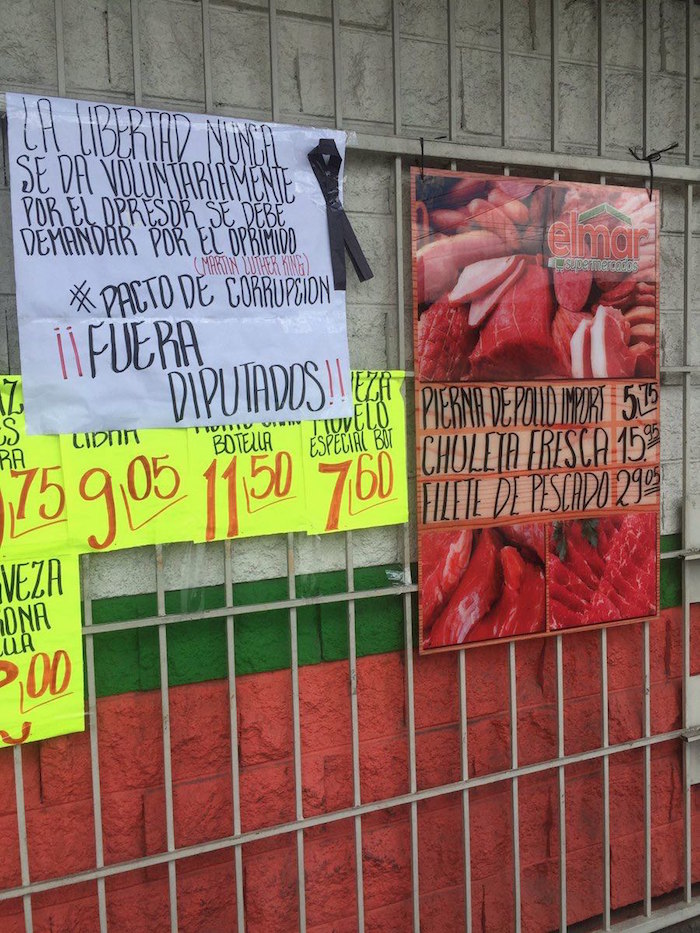 LA LIBERTAD NUNCA
SE DA VOLUNTARIAMENTE
POR EL OPRESOR SE DEBE
DEMANDAR POR EL OPRIMIDO
(MARTIN LUTHER KING)
# PACTO DE CORRUPCION
¡¡FUERA
DIPUTADOS!!
elmar
supermercados
PIERNA DE POLLO IMPORT 5.75
CHULETA FRESCA 15.95
FILETE DE PESCADO 29.05
75
LIBRA
9.05
BOTELLA
11.50
ESPECIAL BOT
7.60
00